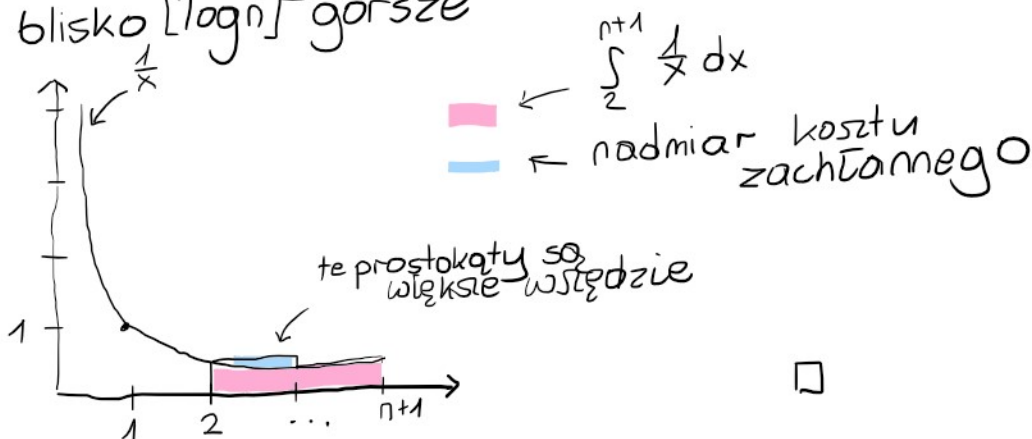 blisko ⌈logn⌉ gorsze
1/x
∫_2^{n+1} 1/x dx
nadmiar kosztu
zachłannego
te prostokąty są
większe wszędzie
1
1 2 ... n+1